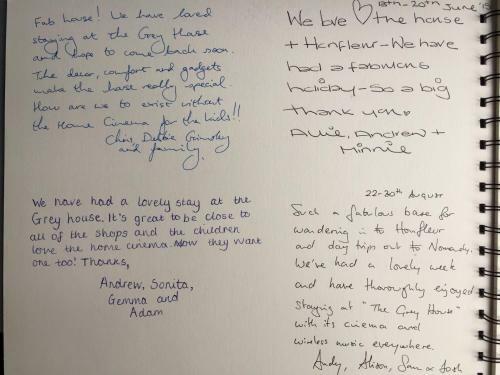 Fab house! We have loved
staying at the Grey House
and hope to come back soon.
The decor, comfort and gadgets
make the house really special.
How are we to exist without
the Home Cinema for the kids!!
Chris, Debbie Grimsby
and family.
We have had a lovely stay at the
Grey house. It's great to be close to
all of the shops and the children
love the home cinema. Now they want
one too! Thanks,
Andrew, Sonita,
Gemma and
Adam
13th-20th June '15
We love the house
+ Honfleur - We have
had a fabulous
holiday - So a big
thank you.
Allie, Andrew +
Minnie
22-30th August
Such a fabulous base for
wandering in to Honfleur
and day trips out to Normandy.
We've had a lovely week
and have thoroughly enjoyed
staying at "The Grey House"
with its cinema and
wireless music everywhere.
Andy, Alison, Sam & Josh